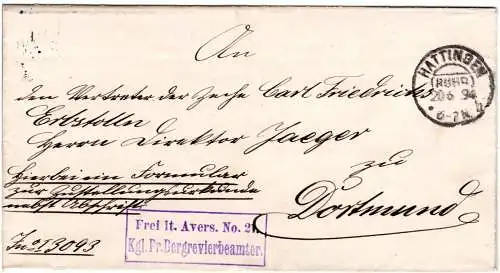 An
HATTINGEN
(RUHR)
20 6 94
6-7 N.
den Vertreter der Zeche Carl Friedrichs
Erbstolln
Herrn Direktor Jaeger
zu
Dortmund
Hierbei ein Formular
zur Zustellungsurkunde
nebst Abschrift
Frei lt. Avers. No. 21.
Kgl. Pr. Bergrevierbeamter.
J No I 3093